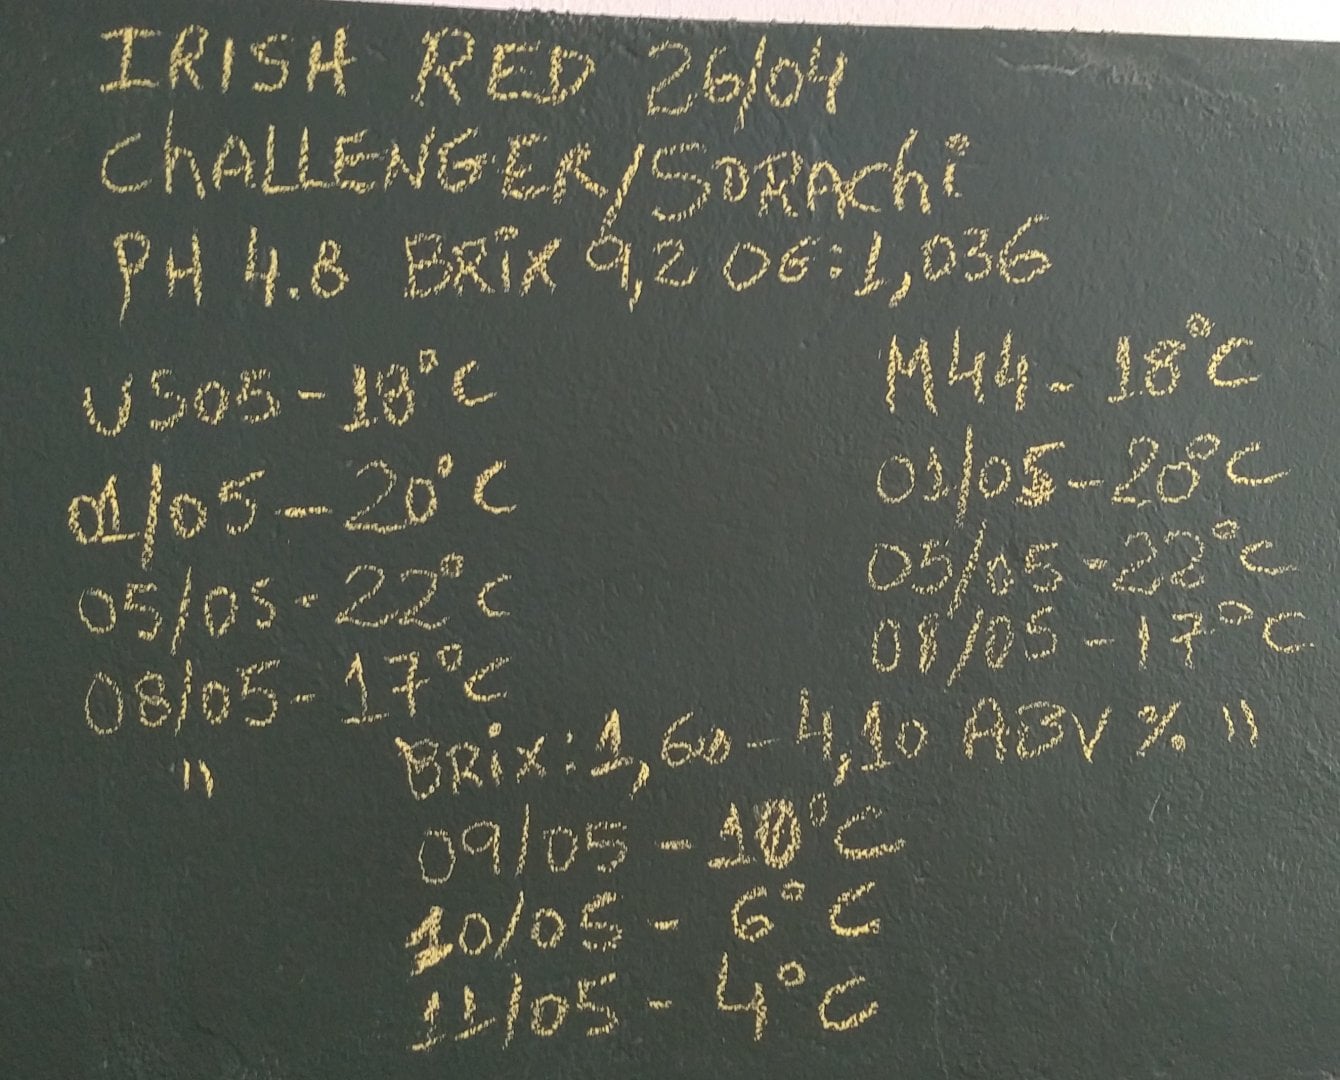 IRISH RED 26/04
ChALLENGER/SORAChi
PH 4.8 BRix 9,2 OG:1,036
US05-18°C M44-18°C
01/05-20°C 01/05-20°C
05/05-22°C 05/05-22°C
08/05-17°C 08/05-17°C
" BRix:1,60-4,10 ABV % "
09/05-10°C
10/05-6°C
11/05-4°C